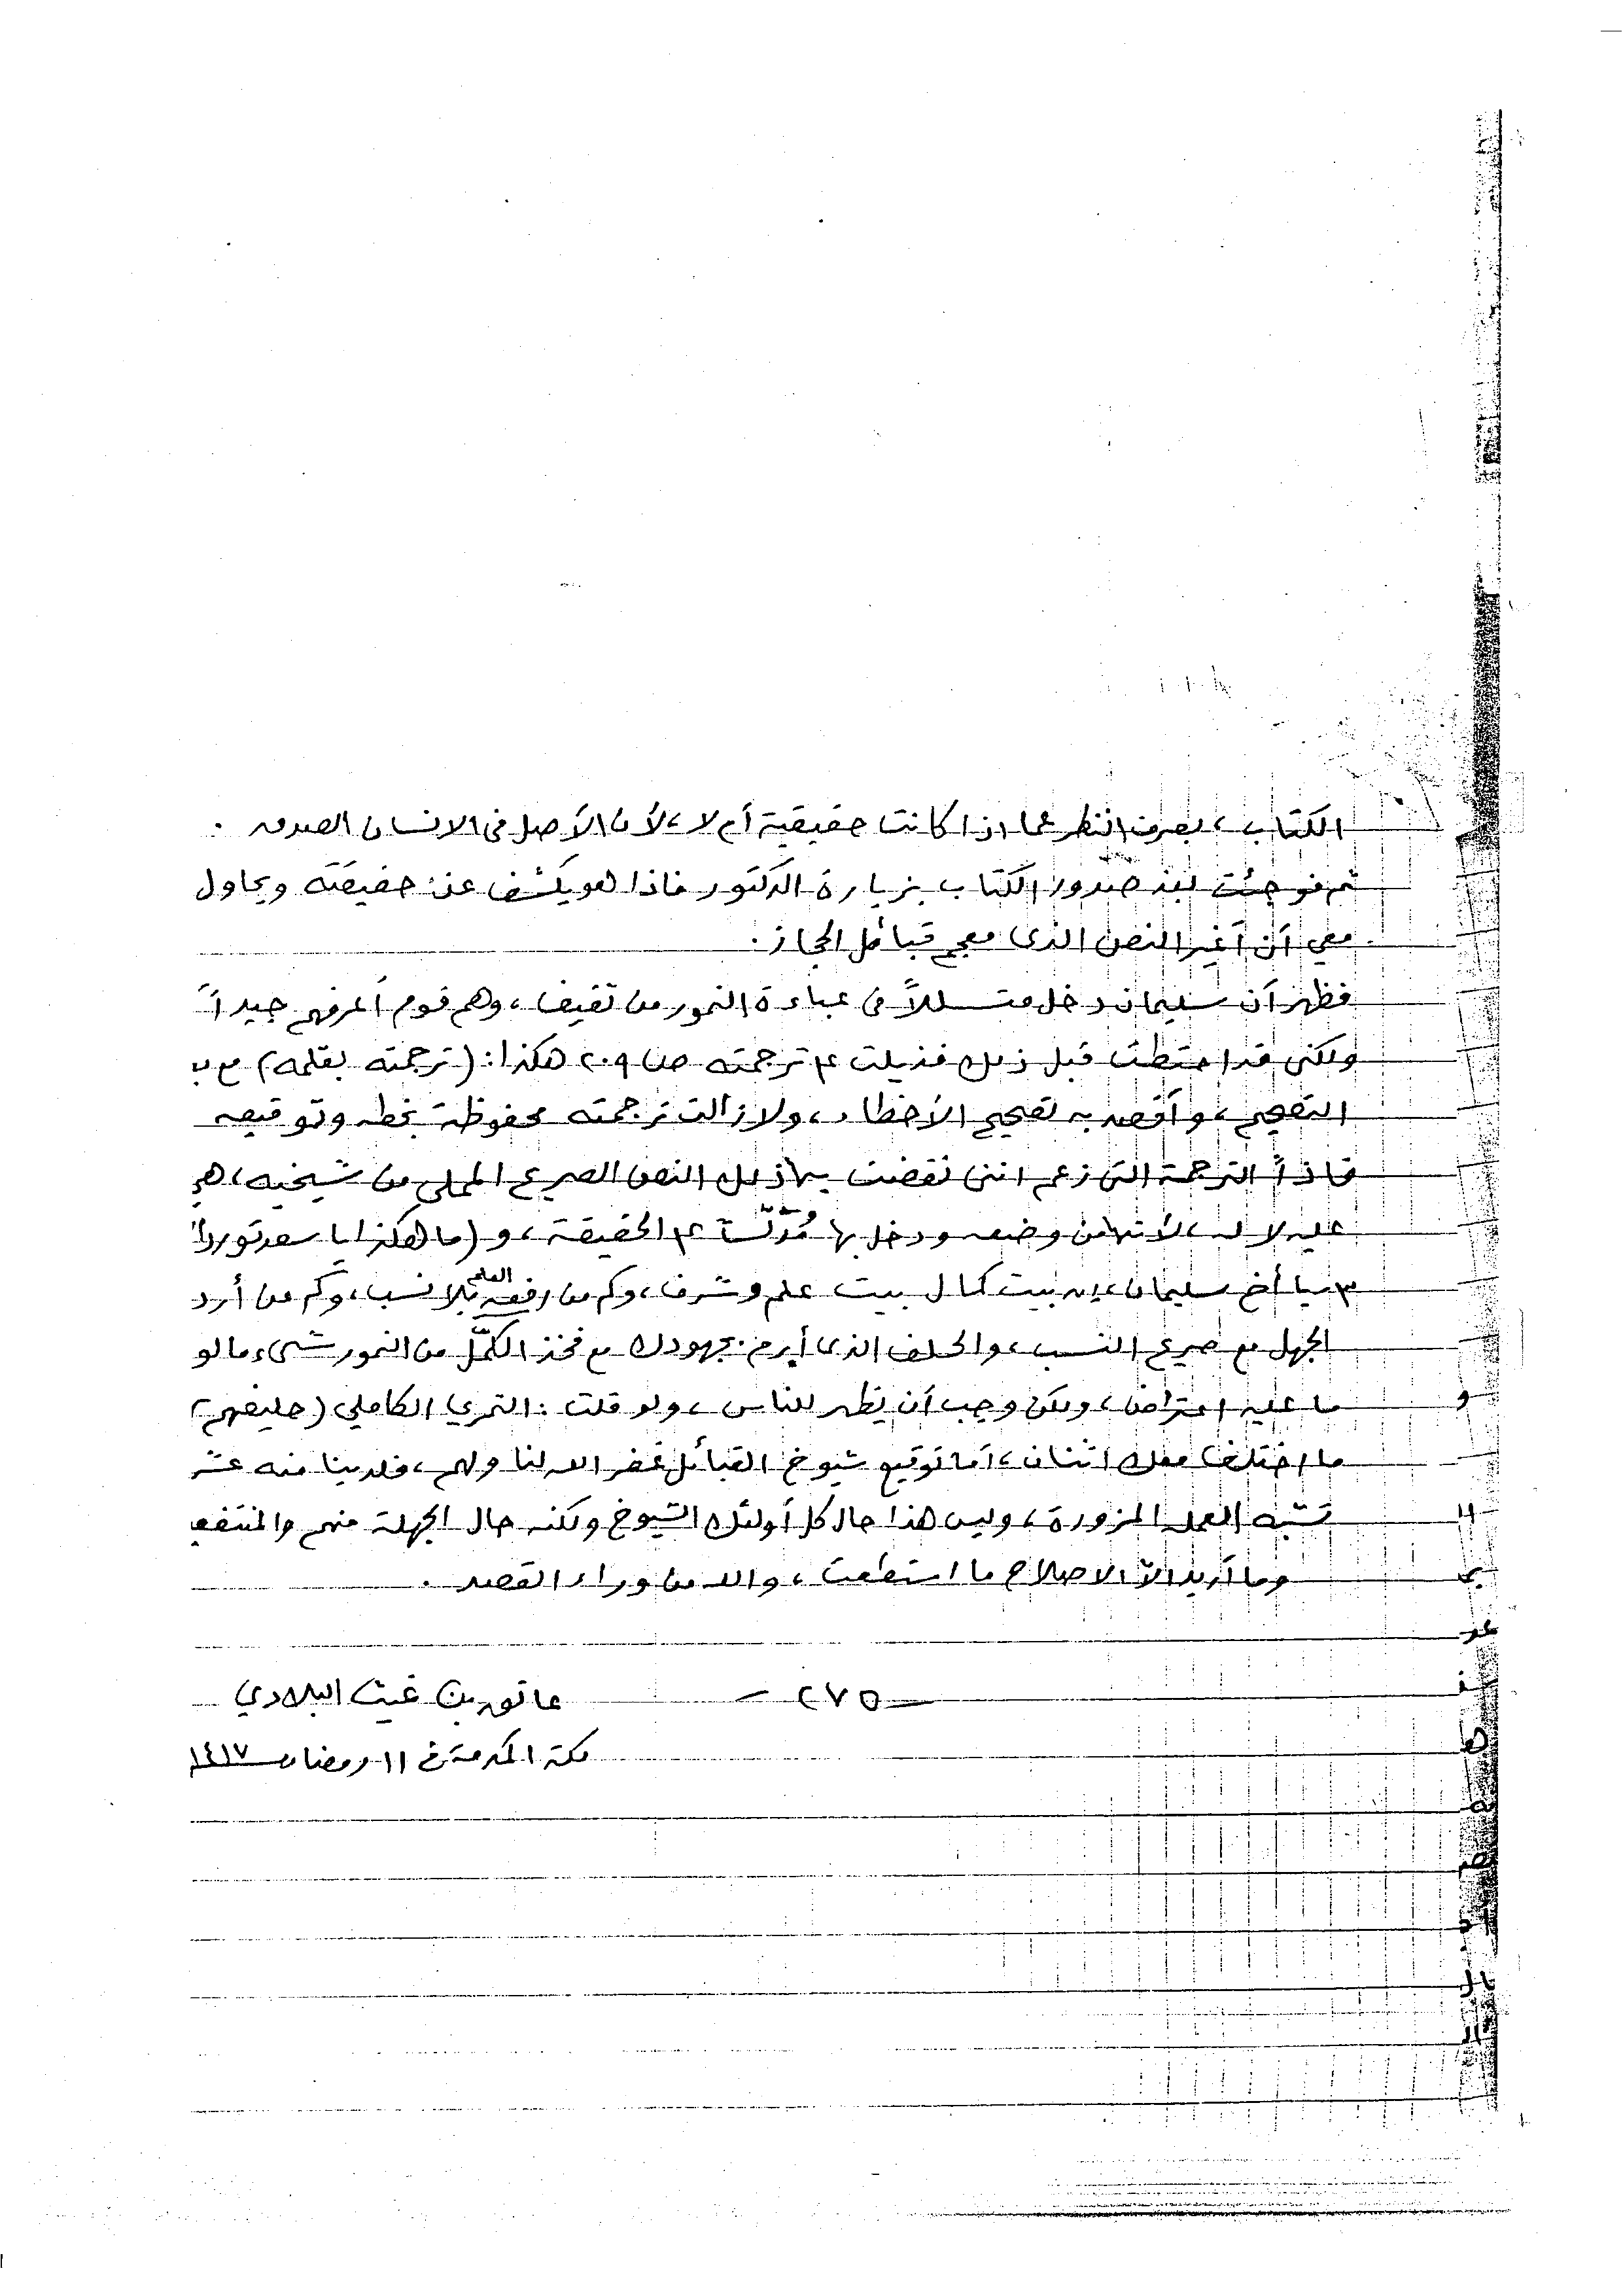 الكتاب، بصرف النظر عما اذا كانت حقيقية أم لا، لأن الأصل في الانسان الصدق .
ثم فوجئت بعد صدور الكتاب بزيارة الدكتور فاذا هو يكشف عن حقيقته ويحاول
معي أن أغير النص الذي معجم قبائل الحجاز .
فظهر أن سليمان دخل متسللاً في عباءة النمور من ثقيف، وهم قوم أعرفهم جيداً
ولكني قد احتطت قبل ذلك فذيلت على ترجمته ص ٢٠٩ هكذا: (ترجمته بقلمه) مع
التصحيح، وأقصد به تصحيح الأخطاء، ولا زالت ترجمته محفوظة بخطه وتوقيعه
فاذاً الترجمة التي زعم انني نقضت بها ذلك النص الصريح المملى من شيخيه، هي
عليه لا له، لأنها من وضعه ودخل بها مُدلّساً على الحقيقة، و (ما هكذا يا سعد تورد
٣- يا أخ سليمان، إن بيت كمال بيت علم وشرف، وكم من رفعه العلم بلا نسب، وكم من أرد
الجهل مع صريح النسب، والحلف الذي أبرم بجهودك مع فخذ الكُمَّل من النمور شيء ما لو
ما عليه اعتراض، ولكن وجب أن يظهر للناس، ولو قلت : النمري الكاملي (حليفهم)
ما اختلف معك اثنان، أما توقيع شيوخ القبائل غفر الله لنا ولهم، فلدينا منه عشر
تشبه العملة المزورة، وليس هذا حال كل أولئك الشيوخ ولكنه حال الجهلة منهم والمنتفع
وما أريد الاّ الاصلاح ما استطعت، والله من وراء القصد .
— ٢٧٥ — عاتق بن غيث البلادي
مكة المكرمة في ١١ رمضان ١٤١٧